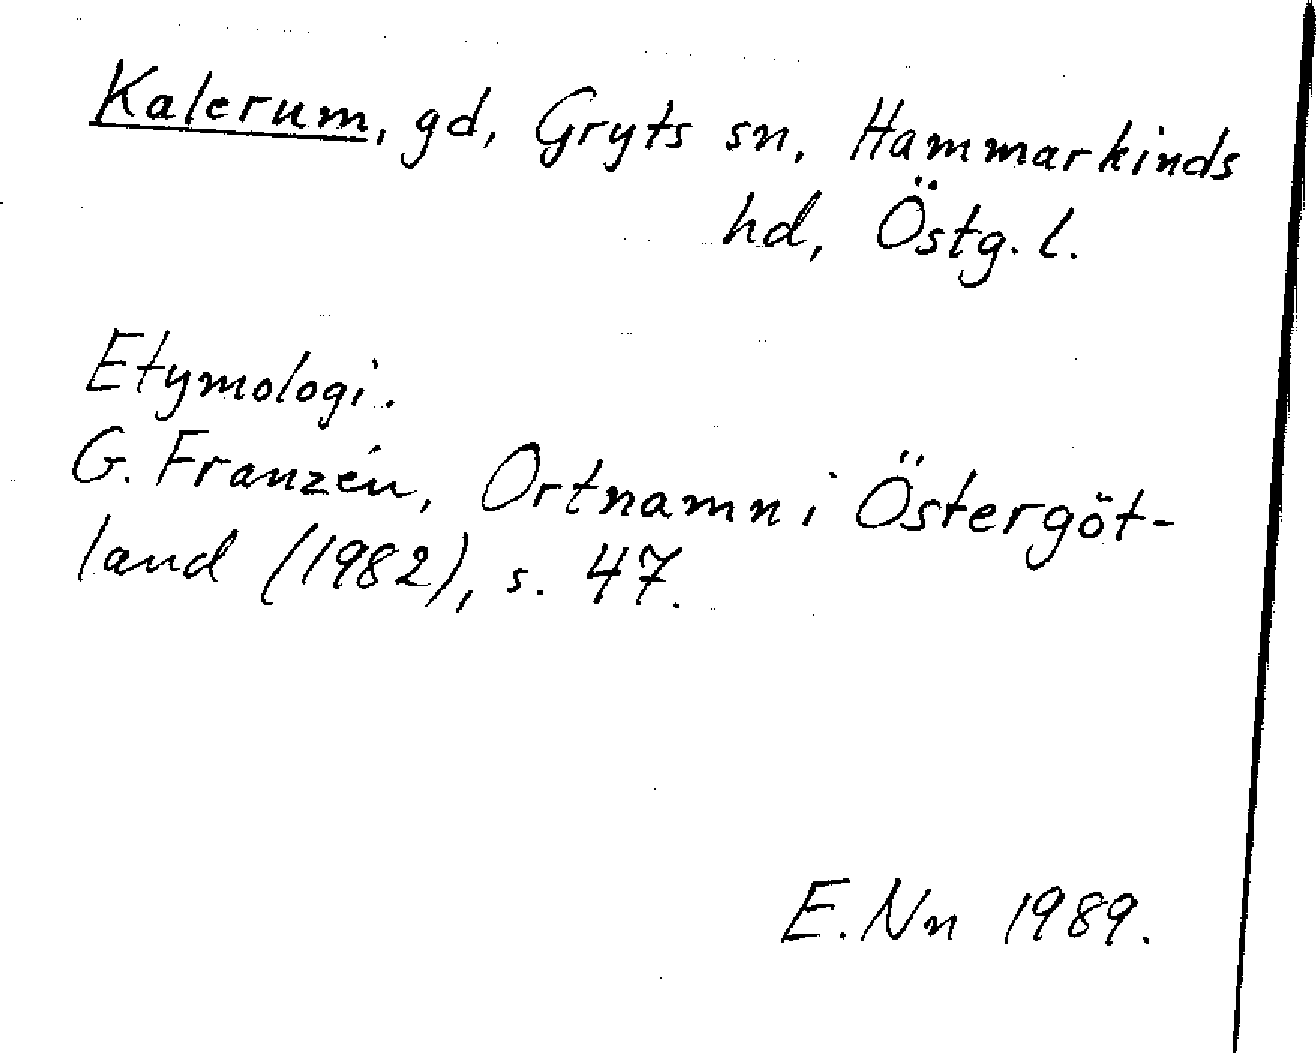 Kalerum, gd, Gryts sn, Hammarkinds
hd, Östg. l.
Etymologi.
G. Franzén, Ortnamn i Östergöt-
land (1982), s. 47.
E. Nn 1989.